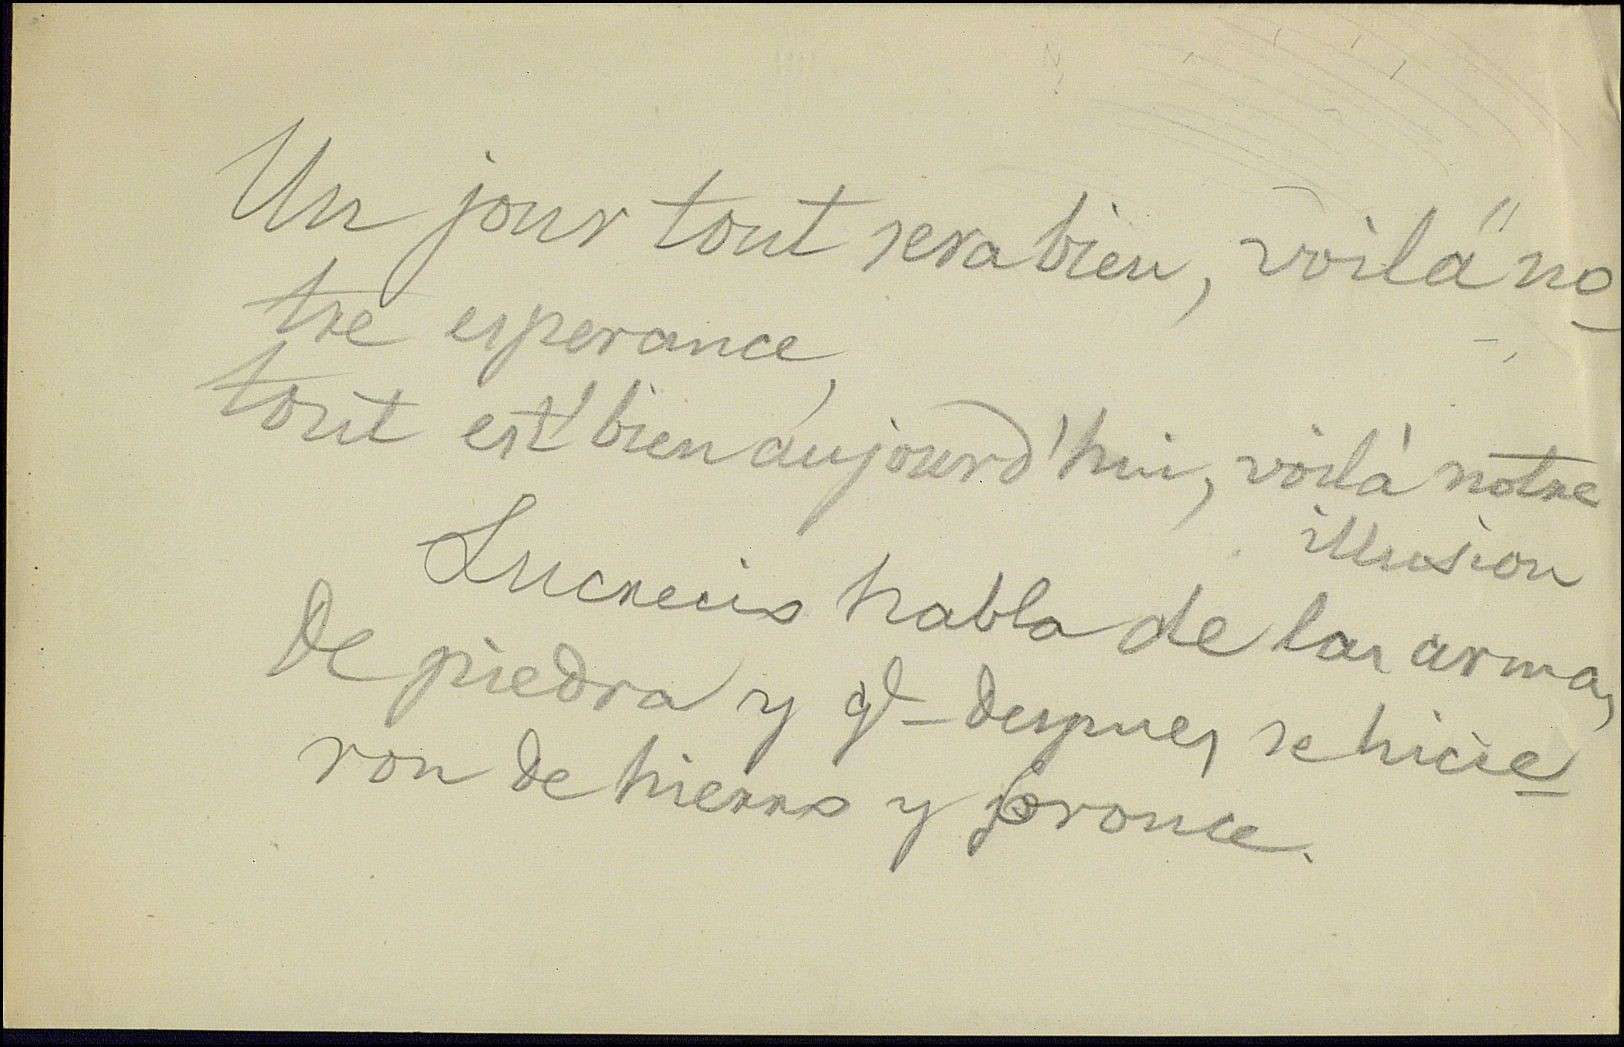 Un jour tout sera bien, voilá no
tre esperance,
tout est bien aujourd'hui, voilá notre
illusion
Lucrecio habla de las armas
de piedra y q̄ despues se hicie
ron de hierro y bronce.